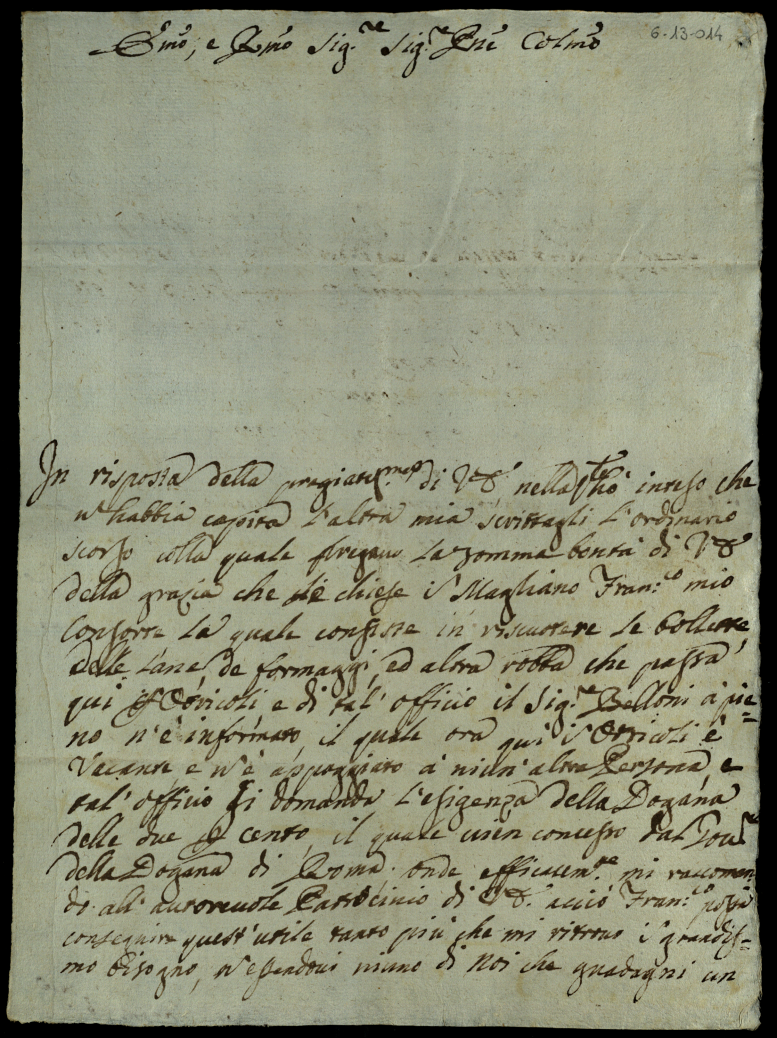 6-13-014
Emo, e Rmo Sig.re Sig.re Pne Colmo
In risposta della pregiatis.ma di VE nella q.le hò inteso che
habbia capita l'altra mia scrittagli l'ordinario
scorso colla quale pregavo la somma bontà di VE
della grazia che li chiese Magliano Fran.co mio
Consorte la quale consiste in riscuotere le bollette
delle lane, de formaggi, ed altra robba che passa
qui Otricoli e di tal' officio il Sig.re Belloni à pie=
no n'è informato, il quale ora qui Otricoli è
Vacante, e n'è appoggiato à niun' altra Persona, e
tal' officio si domanda l'esigenza della Dogana
delle due p cento, il quale vien concesso dal
della Dogana di Roma. onde efficacem.te mi raccoman
do all' autorevole Patrocinio di VE acciò Fran.co possa
conseguire quest' utile tanto più che mi ritrovo grandis=
mo bisogno, n'essendovi niuno di Noi che guadagni un